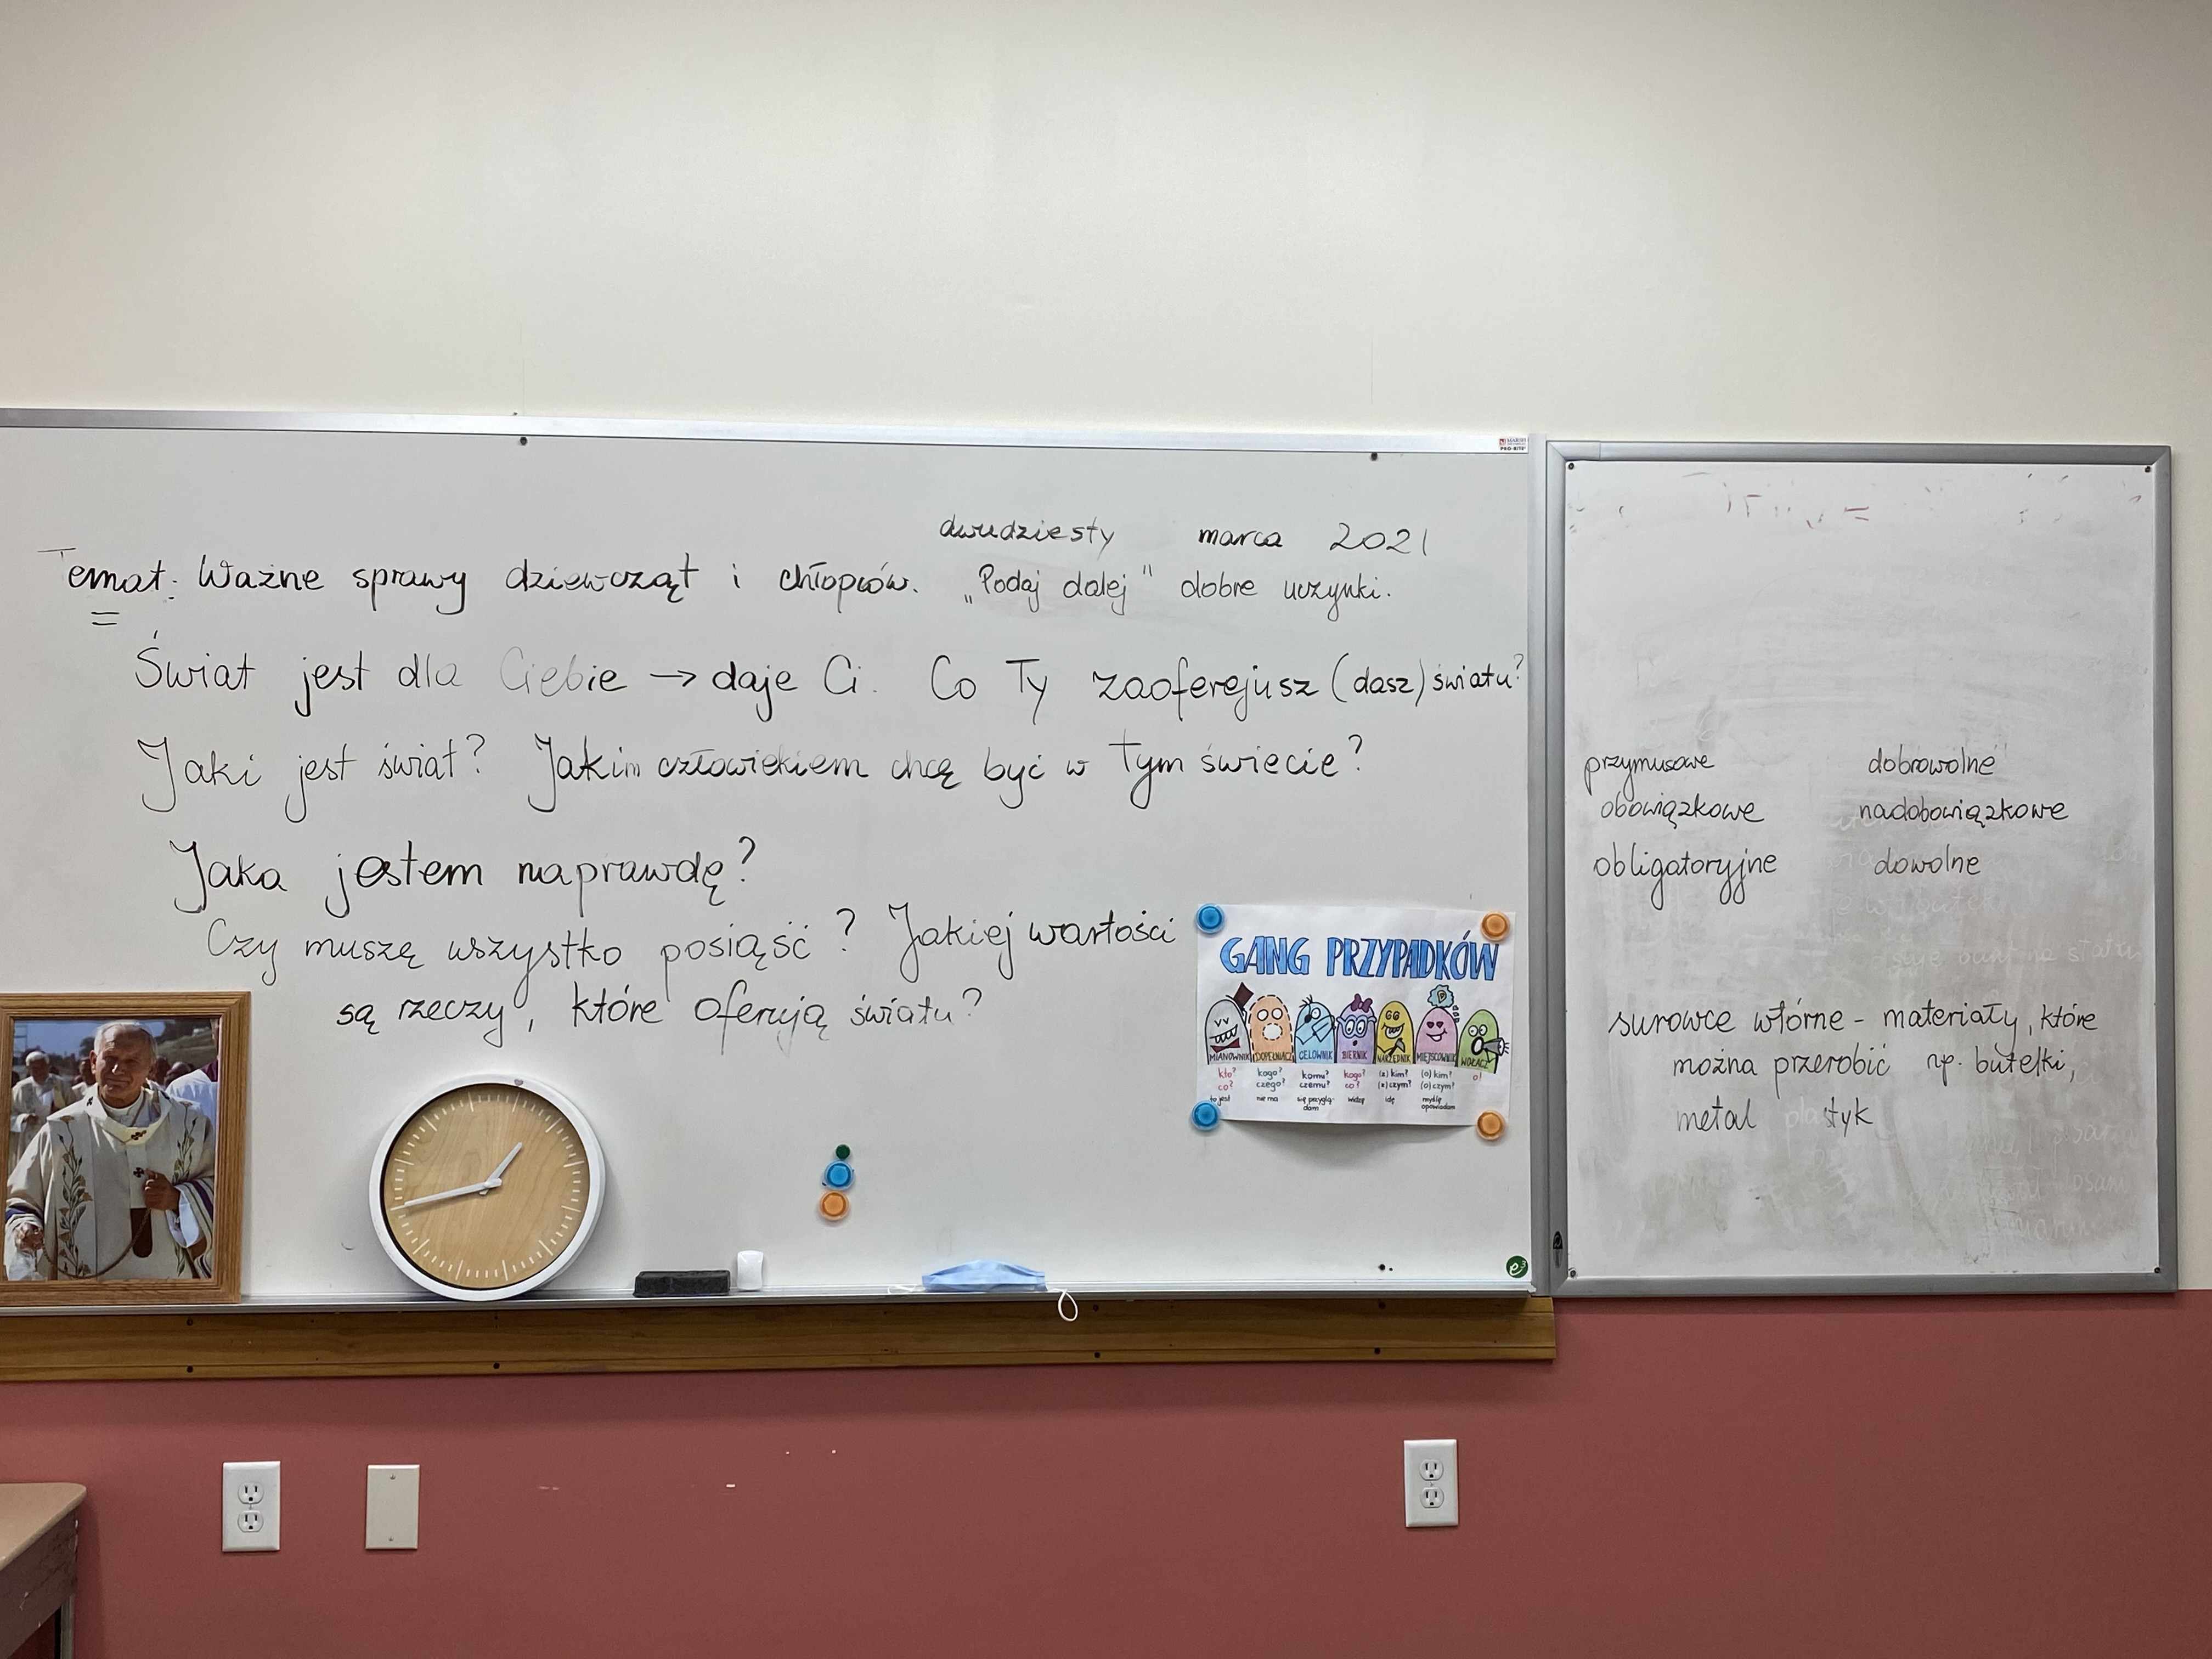 dwudziesty marca 2021
Temat: Ważne sprawy dziewcząt i chłopców. „Podaj dalej" dobre uczynki.
Świat jest dla Ciebie → daje Ci. Co Ty zaoferejusz (dasz) światu?
Jaki jest świat? Jakim człowiekiem chcę być w tym świecie?
Jaka jestem naprawdę?
Czy muszę wszystko posiąść? Jakiej wartości
są rzeczy, które oferują światu?
GANG PRZYPADKÓW
MIANOWNIK DOPEŁNIACZ CELOWNIK BIERNIK NARZĘDNIK MIEJSCOWNIK WOŁACZ
kto? kogo? komu? kogo? (z) kim? (o) kim? o!
co? czego? czemu? co? (z) czym? (o) czym?
to jest nie ma się przyglą- widzę idę myślę
dam opowiadam
przymusowe dobrowolne
obowiązkowe nadobowiązkowe
obligatoryjne dowolne
surowce wtórne - materiały, które
można przerobić np. butelki,
metal plastyk
PRO-RITE
e³